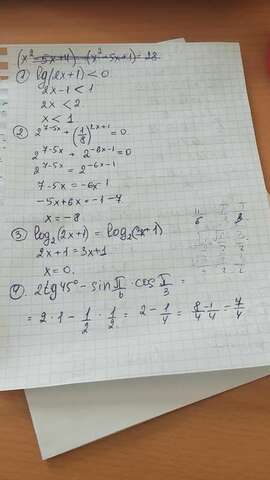 (x² - 5x + 4) (x² - 5x + 1) = 28
① lg(2x+1) < 0
2x - 1 < 1
2x < 2
x < 1
② 2^(7-5x) + (1/8)^(2x+1) = 0
2^(7-5x) + 2^(-8x-1) = 0
2^(7-5x) = 2^(-6x-1)
7 - 5x = -6x - 1
-5x + 6x = -1 - 7
x = -8
③ log₂(2x+1) = log₂(3x+1)
2x + 1 = 3x + 1
x = 0.
④. 2tg45° - sin π/6 · cos π/3 =
= 2 · 1 - 1/2 · 1/2 = 2 - 1/4 = 8/4 - 1/4 = 7/4